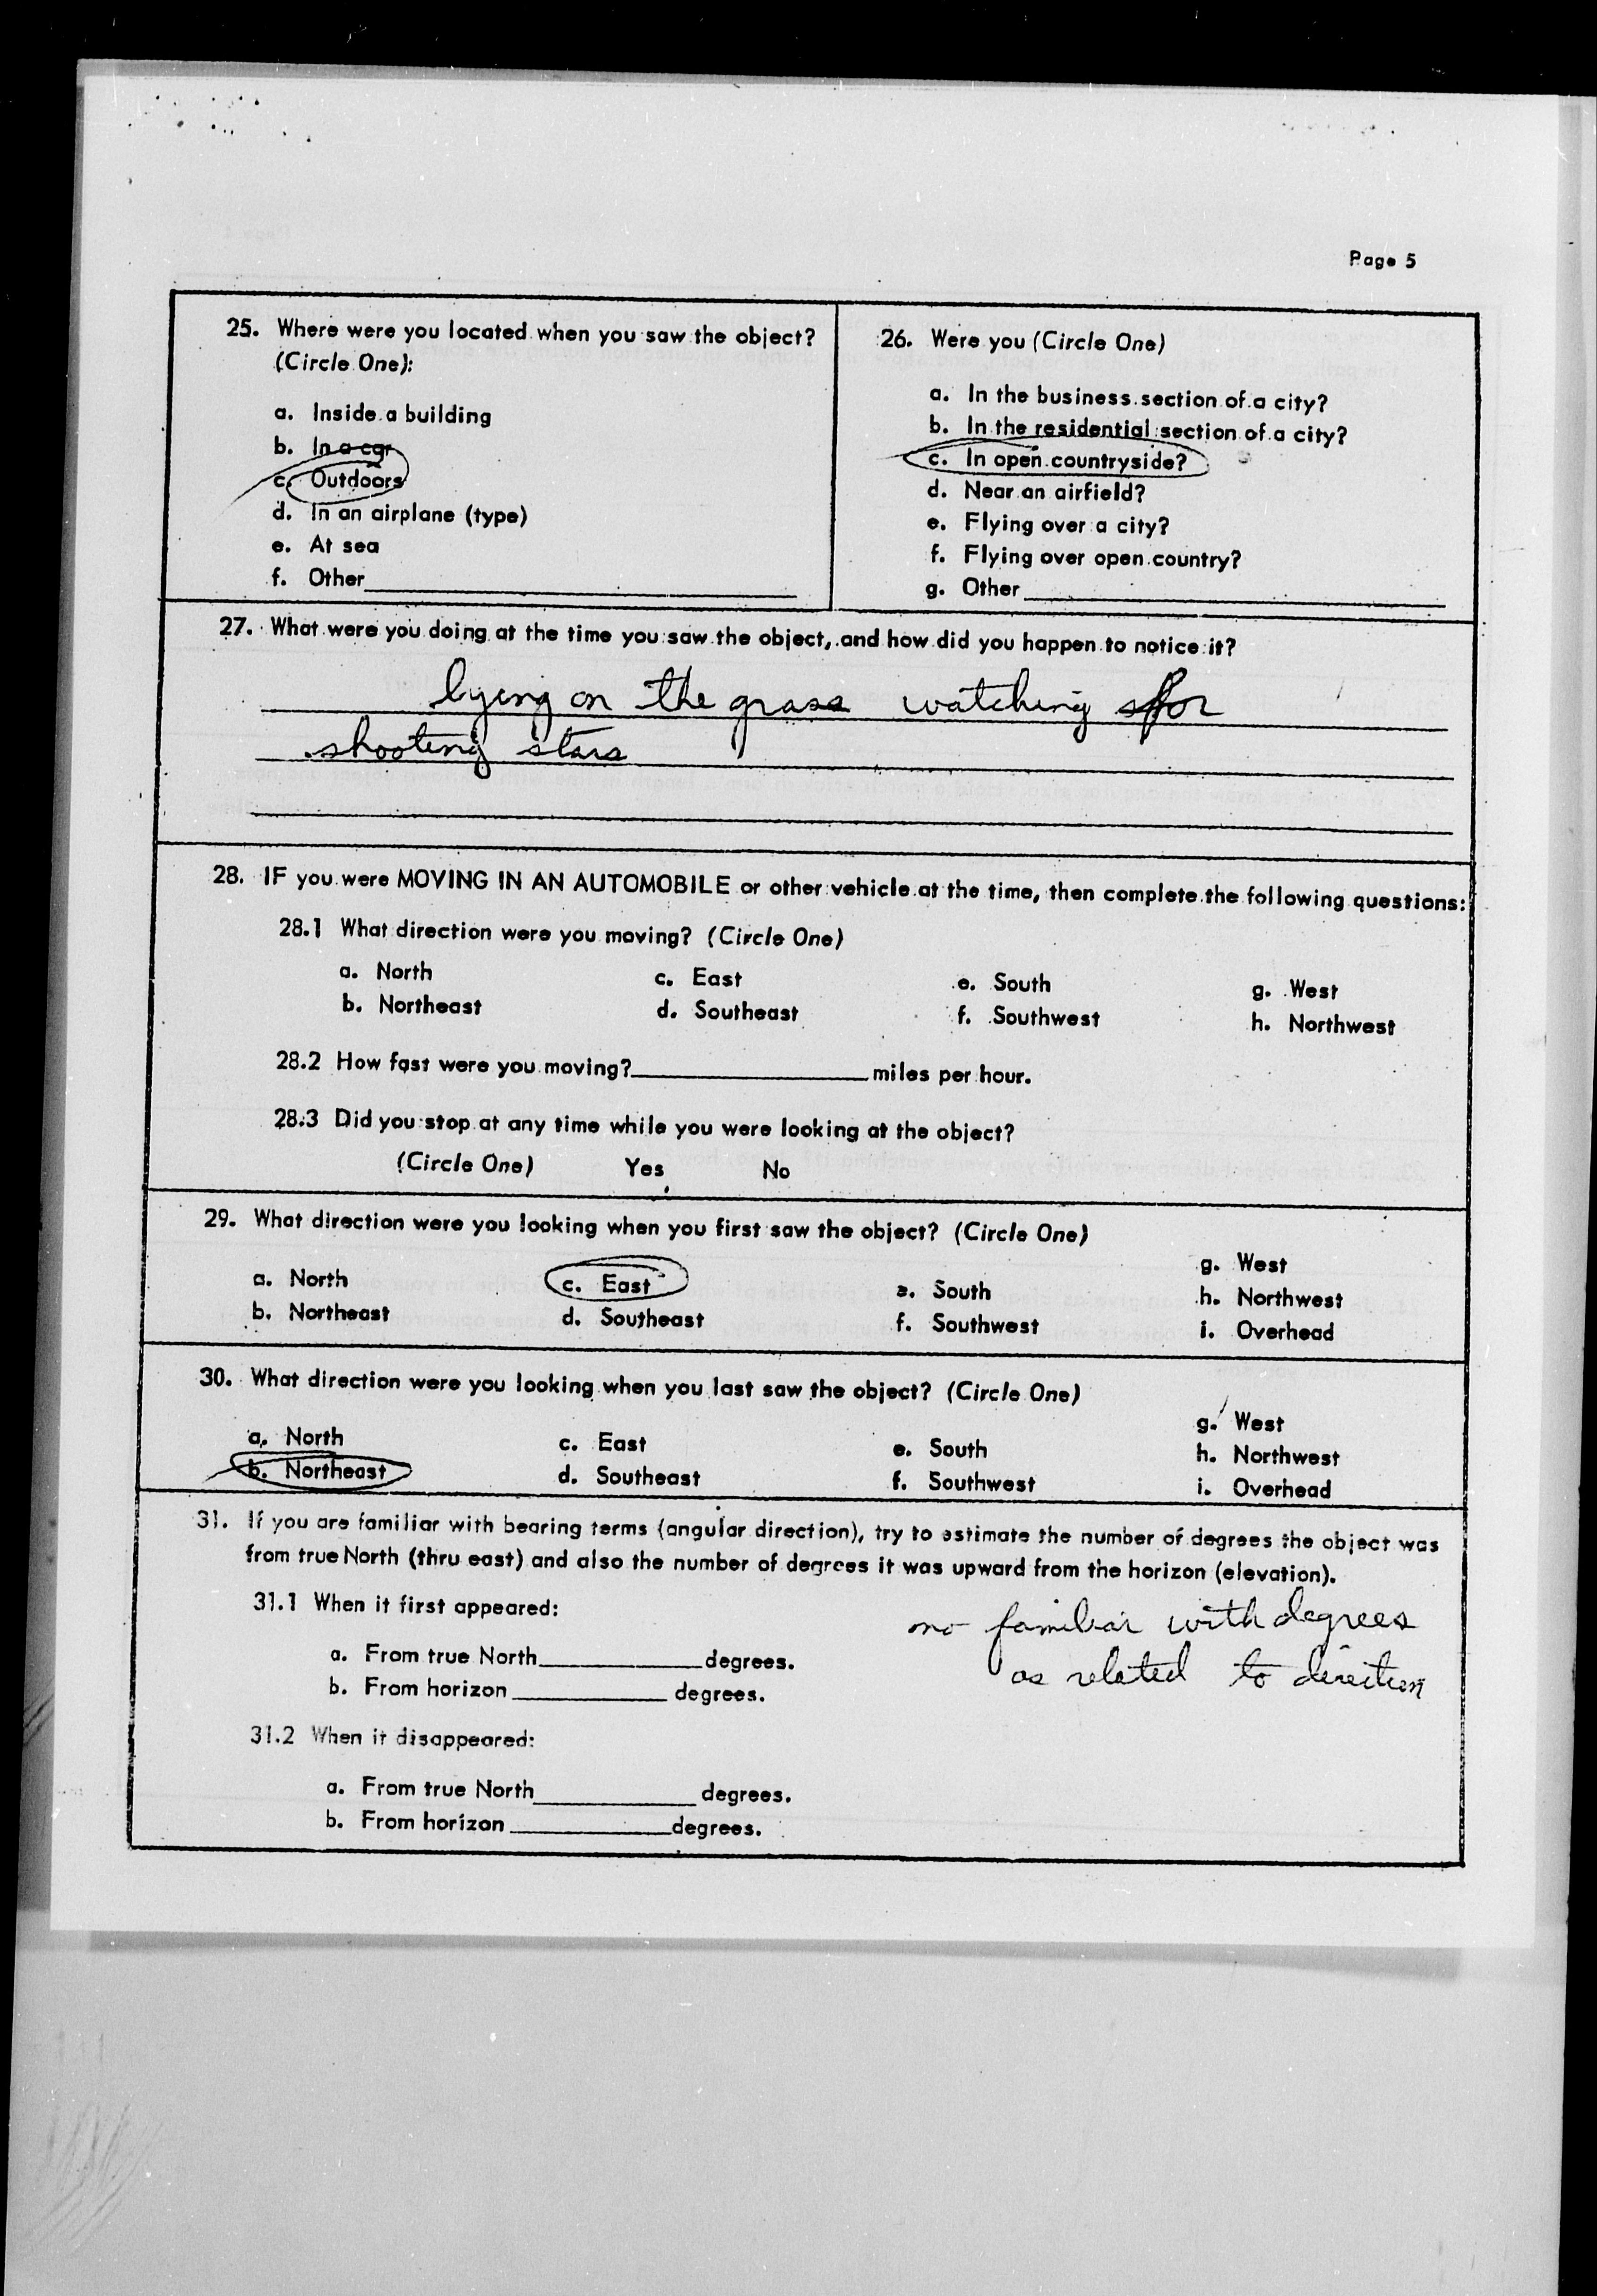 Page 5
25. Where were you located when you saw the object?
(Circle One):
a. Inside a building
b. In a car
c. Outdoors
d. In an airplane (type)
e. At sea
f. Other
26. Were you (Circle One)
a. In the business section of a city?
b. In the residential section of a city?
c. In open countryside?
d. Near an airfield?
e. Flying over a city?
f. Flying over open country?
g. Other
27. What were you doing at the time you saw the object, and how did you happen to notice it?
lying on the grass watching for
shooting stars
28. IF you were MOVING IN AN AUTOMOBILE or other vehicle at the time, then complete the following questions:
28.1 What direction were you moving? (Circle One)
a. North c. East e. South g. West
b. Northeast d. Southeast f. Southwest h. Northwest
28.2 How fast were you moving? miles per hour.
28.3 Did you stop at any time while you were looking at the object?
(Circle One) Yes No
29. What direction were you looking when you first saw the object? (Circle One)
g. West
a. North c. East e. South h. Northwest
b. Northeast d. Southeast f. Southwest i. Overhead
30. What direction were you looking when you last saw the object? (Circle One)
g. West
a. North c. East e. South h. Northwest
b. Northeast d. Southeast f. Southwest i. Overhead
31. If you are familiar with bearing terms (angular direction), try to estimate the number of degrees the object was
from true North (thru east) and also the number of degrees it was upward from the horizon (elevation).
31.1 When it first appeared:
a. From true North degrees.
b. From horizon degrees.
no familiar with degrees
as related to direction
31.2 When it disappeared:
a. From true North degrees.
b. From horizon degrees.